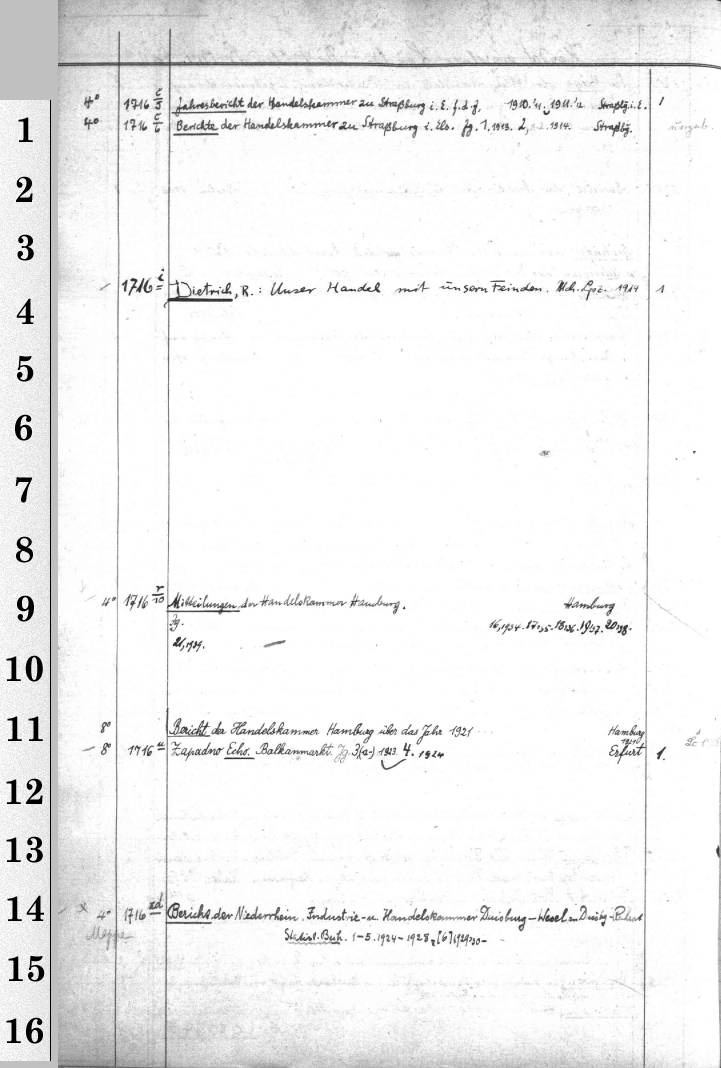 4° 1716 c/5 Jahresbericht der Handelskammer zu Straßburg i. E. f. d. J. 1910.'11. 1911.'12 Straßbg i. E. 1
1 4° 1716 c/6 Berichte der Handelskammer zu Straßburg i. Els. Jg. 1.1913. 2, 1914. Straßbg.
2
3
1716 i Dietrich, R.: Unser Handel mit unsern Feinden. Lpz. 1914 1
4
5
6
7
8
9 4° 1716 r/10 Mitteilungen der Handelskammer Hamburg. Hamburg
Jg. 16,1934. 17,35. 18,36. 19,37. 20,38.
21,1939.
10
11 8° Bericht der Handelskammer Hamburg über das Jahr 1921 Hamburg
1921
8° 1716 u Zapadno Echo. Balkanmarkt. Jg. 3 1923. 4. 1924 Erfurt 1.
12
13
14 4° 1716 xd Bericht der Niederrhein. Industrie- u. Handelskammer Duisburg-Wesel
Mappe Statist. Beih. 1-5. 1924-1928, [6] 1929/30-
15
16